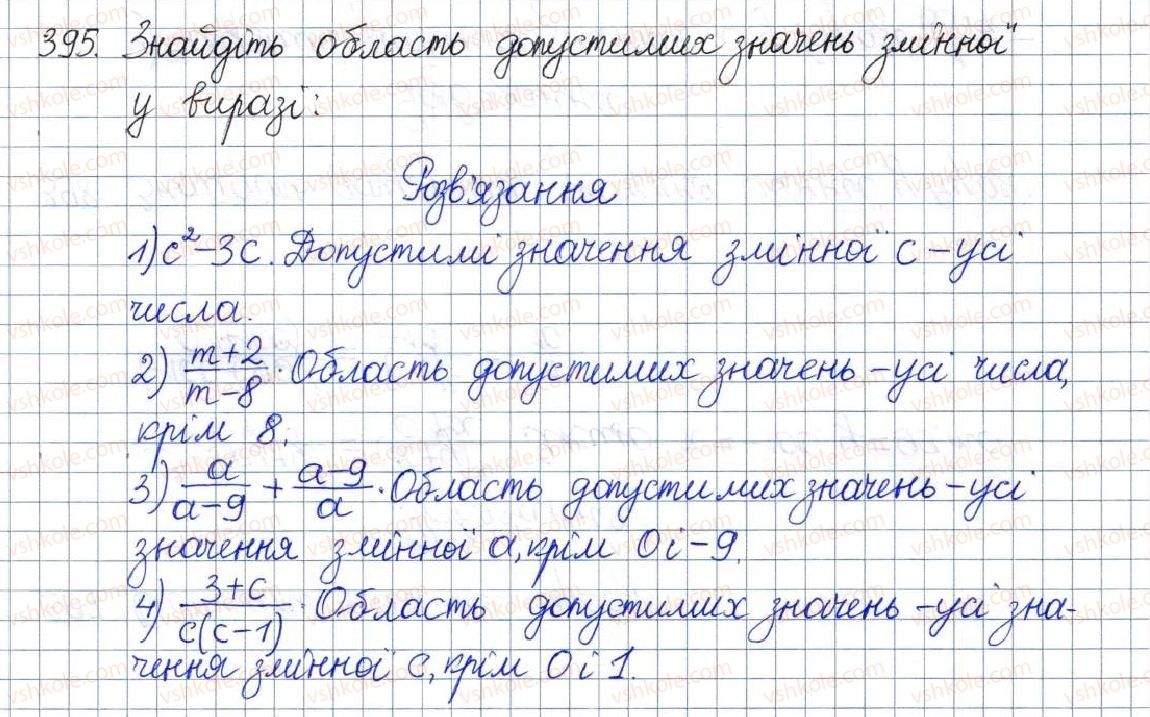 395. Знайдіть область допустимих значень змінної
у виразі:
Розв'язання
1) c²-3c. Допустимі значення змінної c – усі
числа.
2) (m+2)/(m-8). Область допустимих значень – усі числа,
крім 8.
3) a/(a-9) + (a-9)/a. Область допустимих значень – усі
значення змінної a, крім 0 і -9.
4) (3+c)/(c(c-1)). Область допустимих значень – усі зна-
чення змінної c, крім 0 і 1.